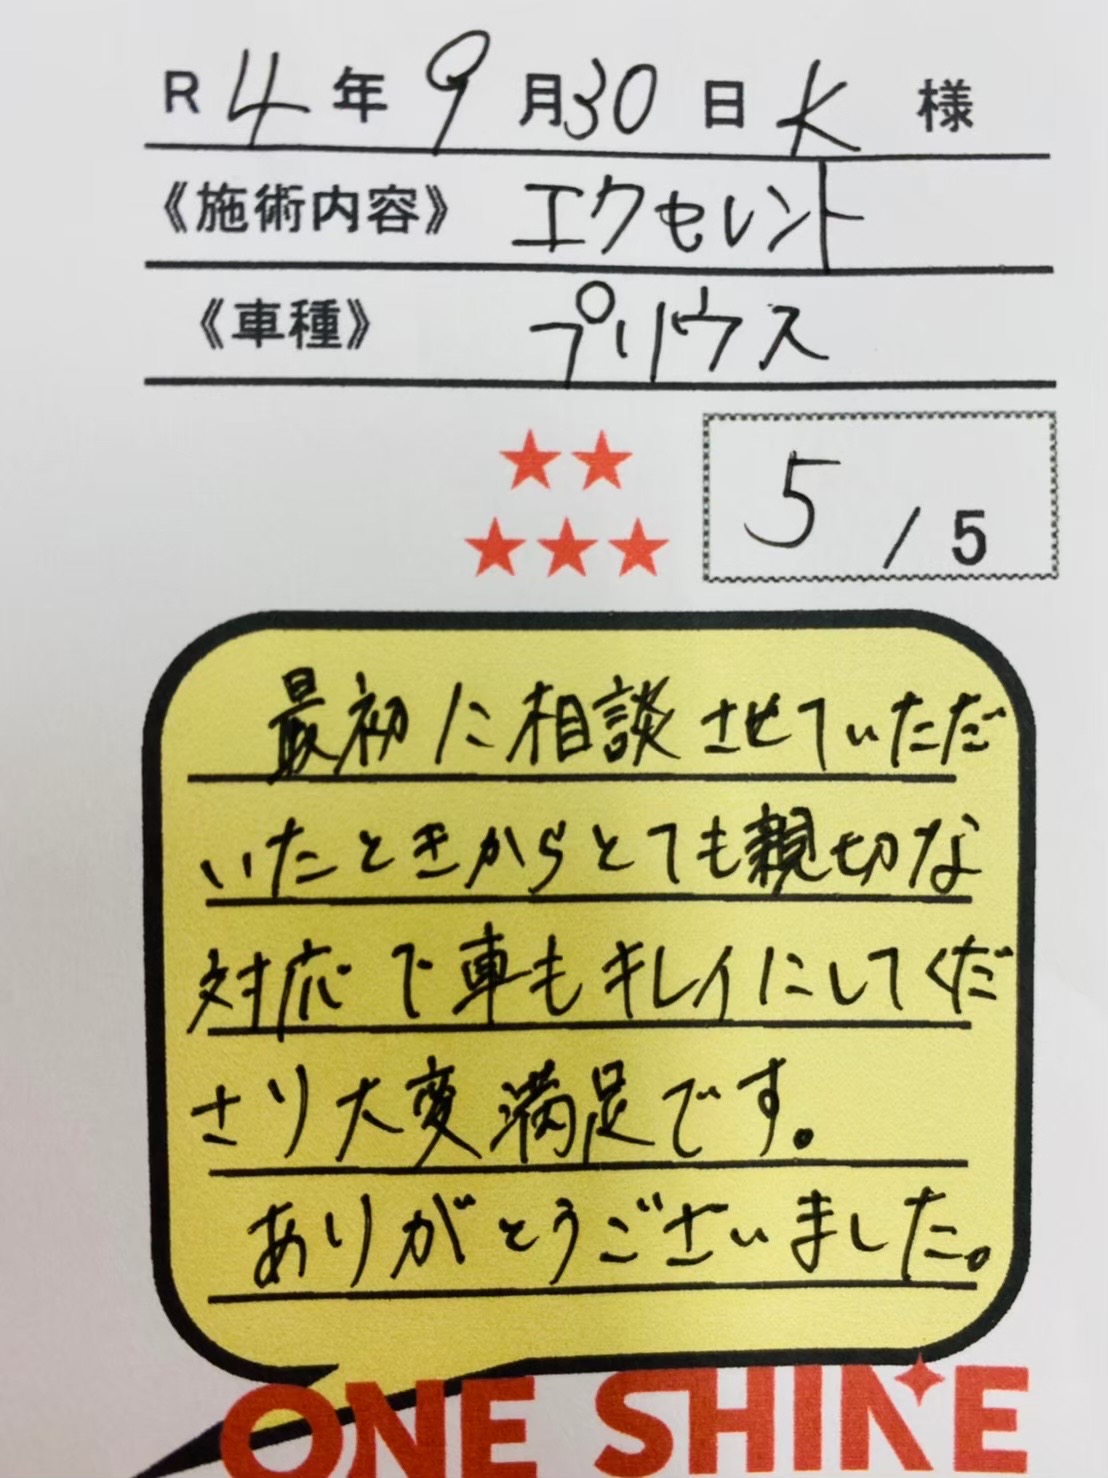 R 4 年 9 月 30 日 K 様
《施術内容》 エクセレント
《車種》 プリウス
5 / 5
最初に相談させていただ
いたときからとても親切な
対応で車もキレイにしてくだ
さり大変満足です。
ありがとうございました。
ONE SHINE